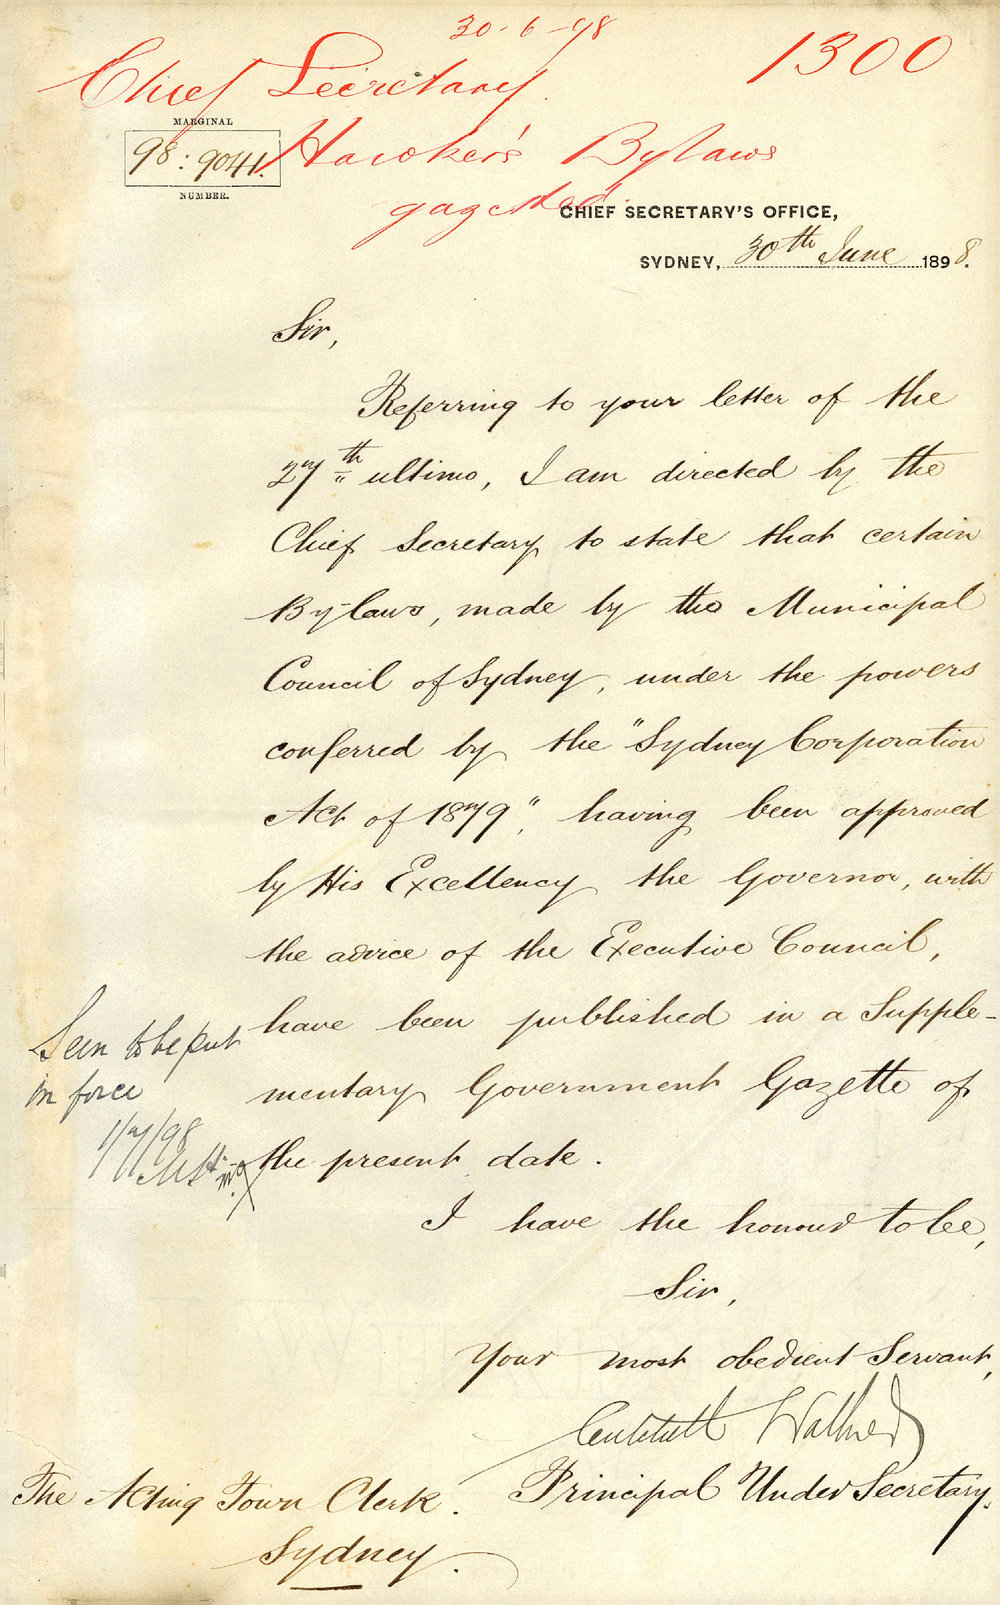 30-6-98
1300
Chief Secretary.
Hawker's Bylaws
gazetted.
MARGINAL
98:9041.
NUMBER.
CHIEF SECRETARY'S OFFICE,
SYDNEY, 30th June 1898.
Sir,
Referring to your letter of the
27th ultimo, I am directed by the
Chief Secretary to state that certain
By-laws, made by the Municipal
Council of Sydney, under the powers
conferred by the "Sydney Corporation
Act of 1879", having been approved
by His Excellency the Governor, with
the advice of the Executive Council,
have been published in a Supple-
mentary Government Gazette of
the present date.
Seen to be put
in force
1/7/98
I have the honour to be,
Sir,
Your most obedient Servant,
Critchett Walker
Principal Under Secretary.
The Acting Town Clerk.
Sydney.